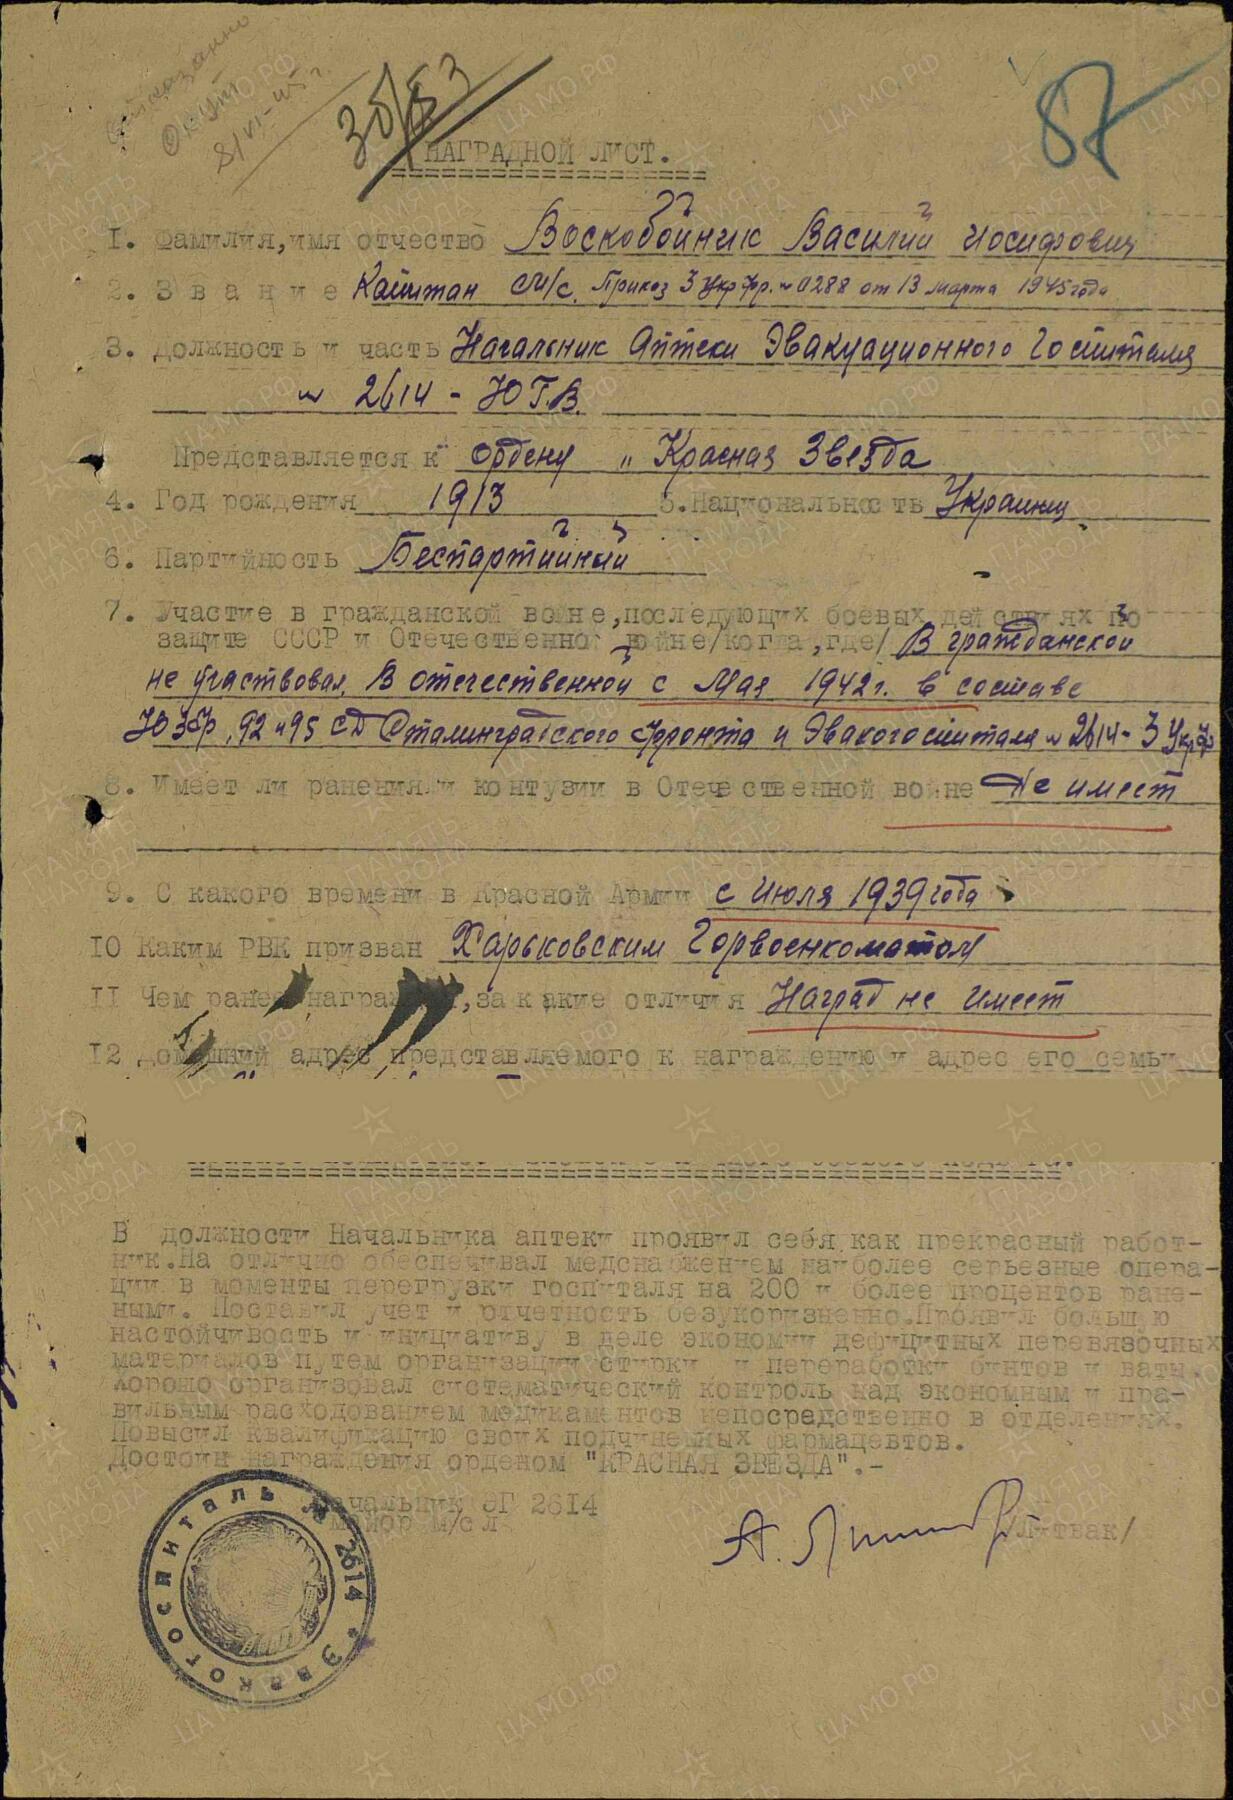 87
НАГРАДНОЙ ЛИСТ.
I. Фамилия, имя отчество Воскобойник Василий Иосифович
2. Звание Капитан м/с. Приказ 3 Укр фр. № 0288 от 13 марта 1945 года
3. Должность и часть Начальник Аптеки Эвакуационного Госпиталя
№ 2614 - ЮГВ.
Представляется к ордену "Красная Звезда
4. Год рождения 1913 5. Национальность Украинец
6. Партийность Беспартийный
7. Участие в гражданской войне, последующих боевых действиях по
защите СССР и Отечественной войне/когда, где/ В гражданской
не участвовал. В отечественной с Мая 1942 г. в составе
ЮЗФр, 92 и 95 СД Сталинградского фронта и Эвакогоспиталя № 2614 - 3 Укр Ф
8. Имеет ли ранения и контузии в Отечественной войне Не имеет
9. С какого времени в Красной Армии с Июля 1939 года
IO Каким РВК призван Харьковским Горвоенкоматом
II Чем ранее награжден, за какие отличия Наград не имеет
I2 Домашний адрес представляемого к награждению и адрес его семьи
В должности Начальника аптеки проявил себя как прекрасный работ-
ник. На отлично обеспечивал медснаряжением наиболее серьезные опера-
ции в моменты перегрузки госпиталя на 200 и более процентов ране-
ными. Поставил учет и отчетность безукоризненно. Проявил большую
настойчивость и инициативу в деле экономии дефицитных перевязочных
материалов путем организации стирки и переработки бинтов и ваты.
Хорошо организовал систематический контроль над экономным и пра-
вильным расходованием медикаментов непосредственно в отделениях.
Повысил квалификацию своих подчиненных фармацевтов.
Достоин награждения орденом "КРАСНАЯ ЗВЕЗДА".-
Начальник ЭГ 2614
майор м/сл
/Литвак/
Эвакогоспиталь № 2614